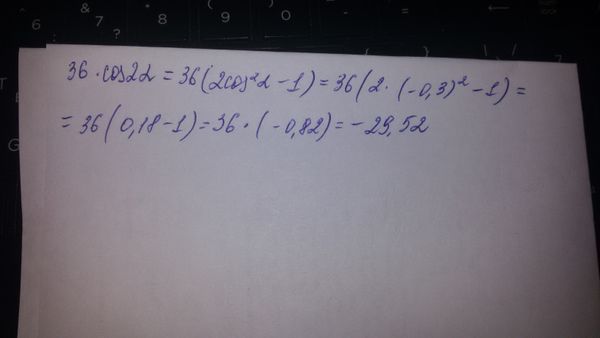 36 · cos2α = 36(2cos²α − 1) = 36(2 · (−0,3)² − 1) =
= 36(0,18 − 1) = 36 · (−0,82) = −29,52